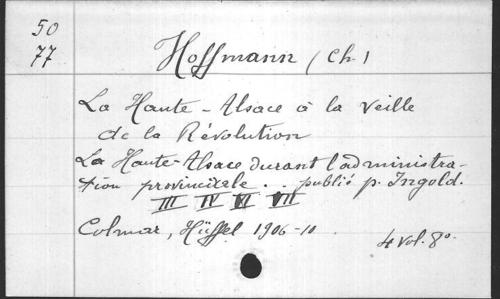 50
77
Hoffmann (Ch.)
La Haute-Alsace à la veille
de la Révolution
La Haute-Alsace durant l'administra-
tion provinciale .. publié p. Ingold.
III IV VI VII
Colmar, Hüffel 1906-10
4 vol. 8º.